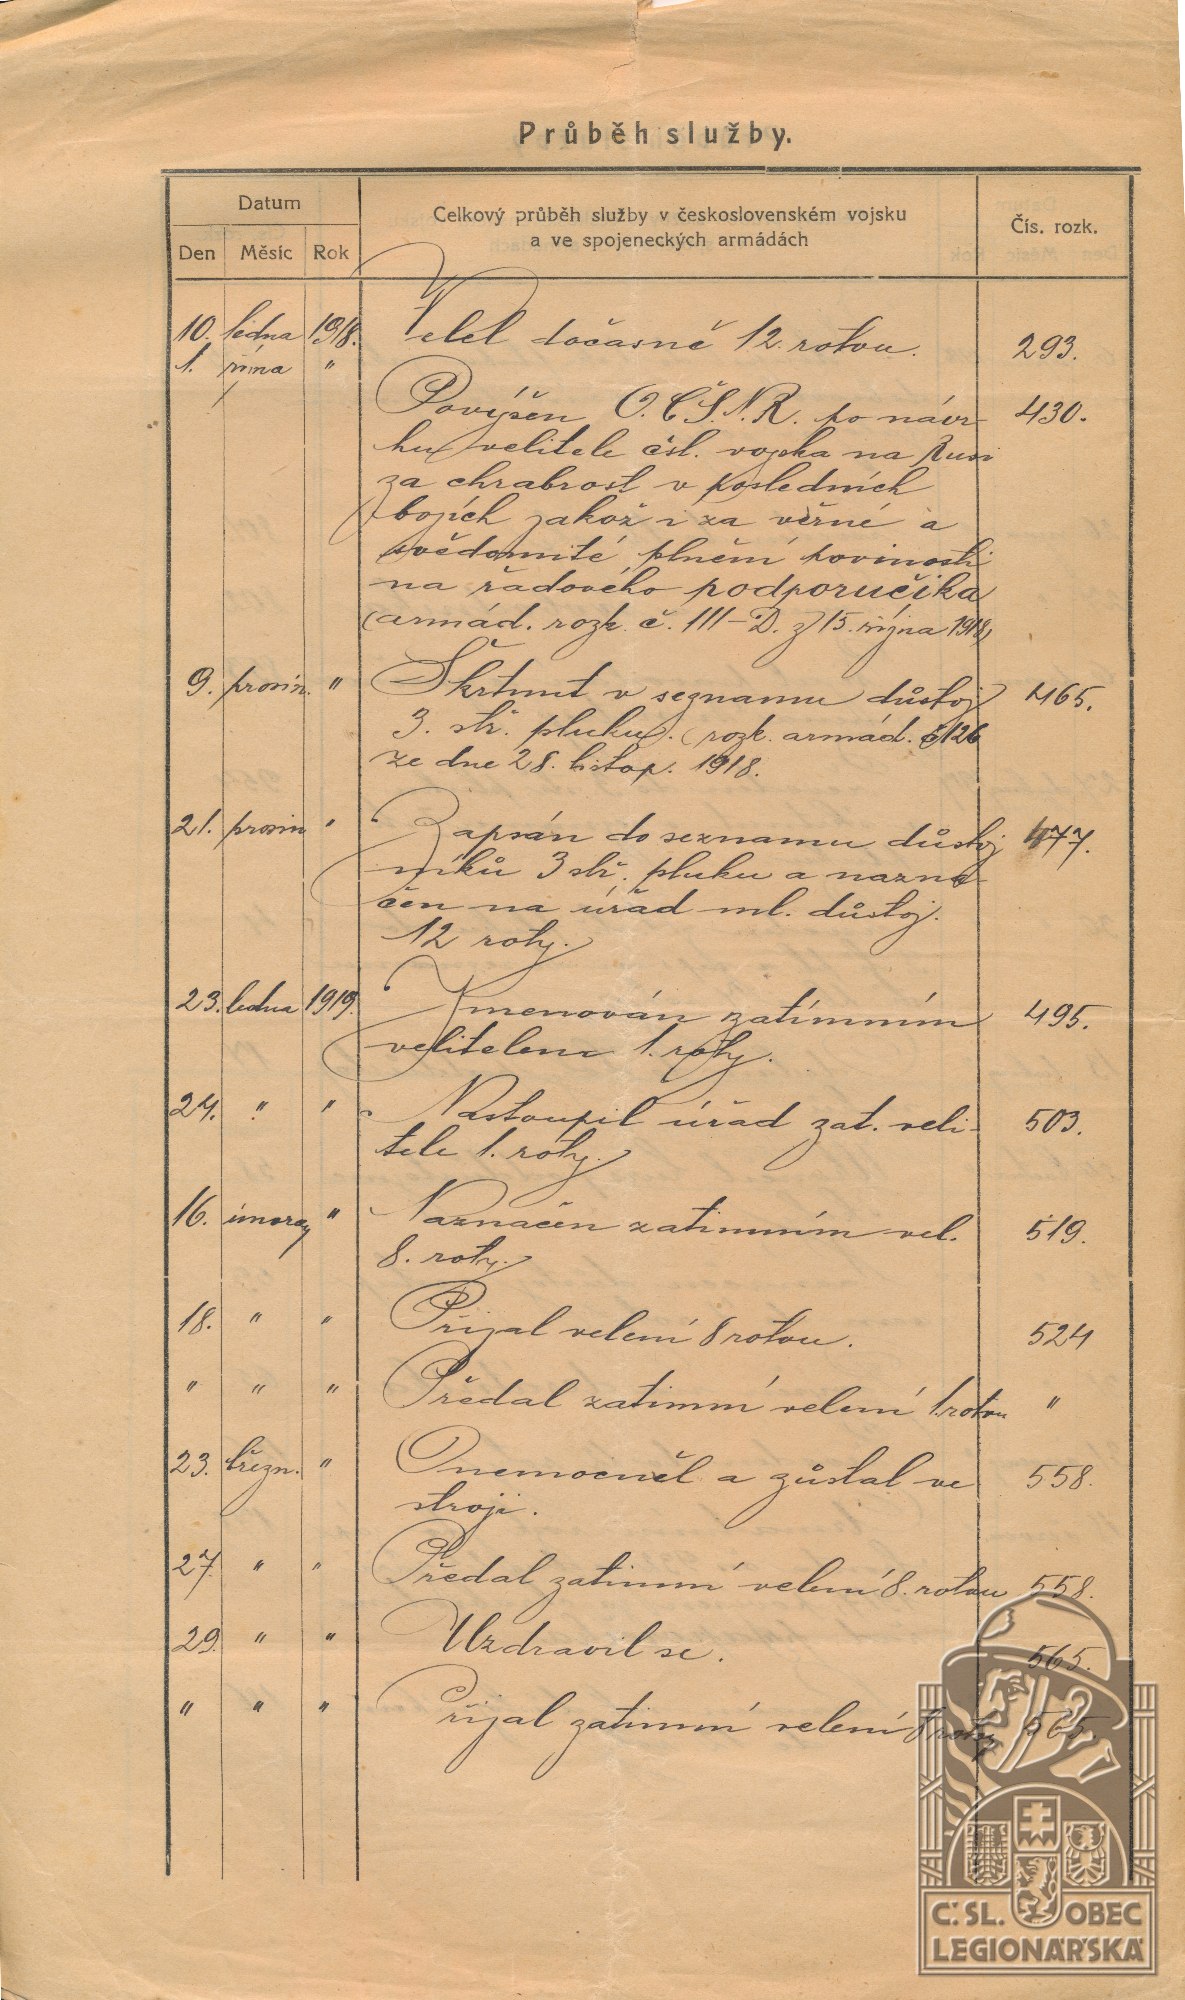 Průběh služby.
Datum
Celkový průběh služby v československém vojsku
a ve spojeneckých armádách
Čís. rozk.
Den Měsíc Rok
10. ledna 1918. Velel dočasně 12. rotou. 293.
1. října "
Povýšen O.Č.S.N.R. po návr- 430.
hu velitele čsl. vojska na Rusi
za chrabrost v posledních
bojích jakož i za věrné a
svědomité plnění povinosti
na řádového podporučíka
(armád. rozk. č. III-D. z 15. října 1918)
9. prosin. " Škrtnut v seznamu důstoj 465.
3. stř. pluku. (rozk. armád. č 126
ze dne 28. listop. 1918.
21. prosin " Zapsán do seznamu důstoj 477.
níků 3 stř. pluku a nazna-
čen na úřad ml. důstoj.
12 roty.
23. ledna 1919. Jmenován zatímním 495.
velitelem 1. roty.
24. " " Nastoupil úřad zat. veli- 503.
tele 1. roty.
16. února " Naznačen zatímním vel. 519.
8. roty.
18. " " Přijal velení 8 rotou. 524
" " " Předal zatimní velení 1. rotou "
23. březn. " Onemocněl a zůstal ve 558.
stroji.
27. " " Předal zatimní velení 8. rotou 558.
29. " " Uzdravil se. 565.
" " " Přijal zatimní velení 8 roty 565.
Č.SL. OBEC
LEGIONÁŘSKÁ